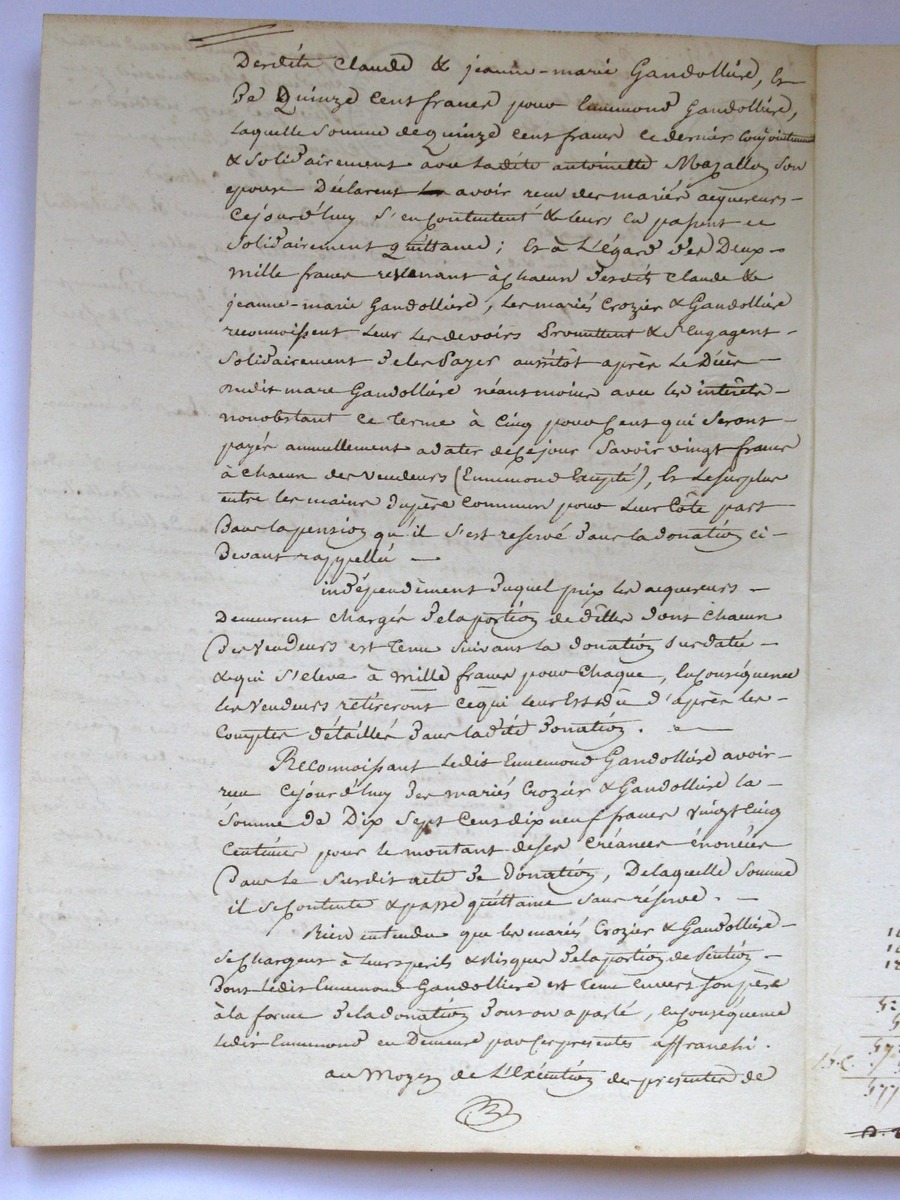 Desdits Claude & jeanne-marie Gandollière, Et
De Quinze Cent francs pour Ennemond Gandollière,
Laquelle Somme de quinze cent francs ce dernier Conjointement
& Solidairement avec Ladite antoinette Mazallon Son
epouse Déclarent avoir reçu des mariés acquereurs -
Cejourd'huy S'en Contentent & leurs En passent
Solidairement Quittance ; Et à L'égard des Deux -
mille francs revenant à chacun desdits Claude &
jeanne-marie Gandollière, Les mariés Crozier & Gandollière
reconnoissent Leur Les devoirs Promettent & S'Engagent -
Solidairement de les Payer aussitôt après Le Décès -
dudit marc Gandollière néantmoins avec les interêts -
nonobstant ce Terme à Cinq pour Cent qui Seront -
payés annuellement adater dece jour Savoir vingt francs
à chacun des vendeurs (Ennemond Excepté), Et Le Surplus
entre les mains du père Commun pour Leur Côte part
Dans la pension qu'il S'est reservé dans la donation ci-
Devant rappellée -
indépendément duquel prix les acquereurs -
Demeurent chargés de la portion de dettes dont chacun
Des Vendeurs est Tenu Suivant La donation Surdatée -
& qui S'eleve à Mille francs pour Chaque, En Conséquence
les Vendeurs retireront ce qui Leur Est dû d'après les -
Comptes détaillés dans ladite donation . -
Reconnoissant Ledit Ennemond Gandollière avoir -
reçu Cejourd'huy des mariés Crozier & Gandollière la -
Somme de Dix Sept Cens dix neuf francs vingt Cinq
Centimes pour le montant de Ses Créances énoncées
Dans Le Susdit acte de Donation, De laquelle Somme
il Se Contente & passe quittance Sans réserve . -
Bien entendu que les mariés Crozier & Gandollière -
Se Chargent à Leurs perils & Risques de la portion de Pention -
Dont Ledit Ennemond Gandolliere est Tenu Envers Son père
à la forme de la donation dont on a parlé, En Conséquence
Ledit Ennemond en Demeure par Ces présentes affranchi .
au Moyen de L'Exécution des présentes de